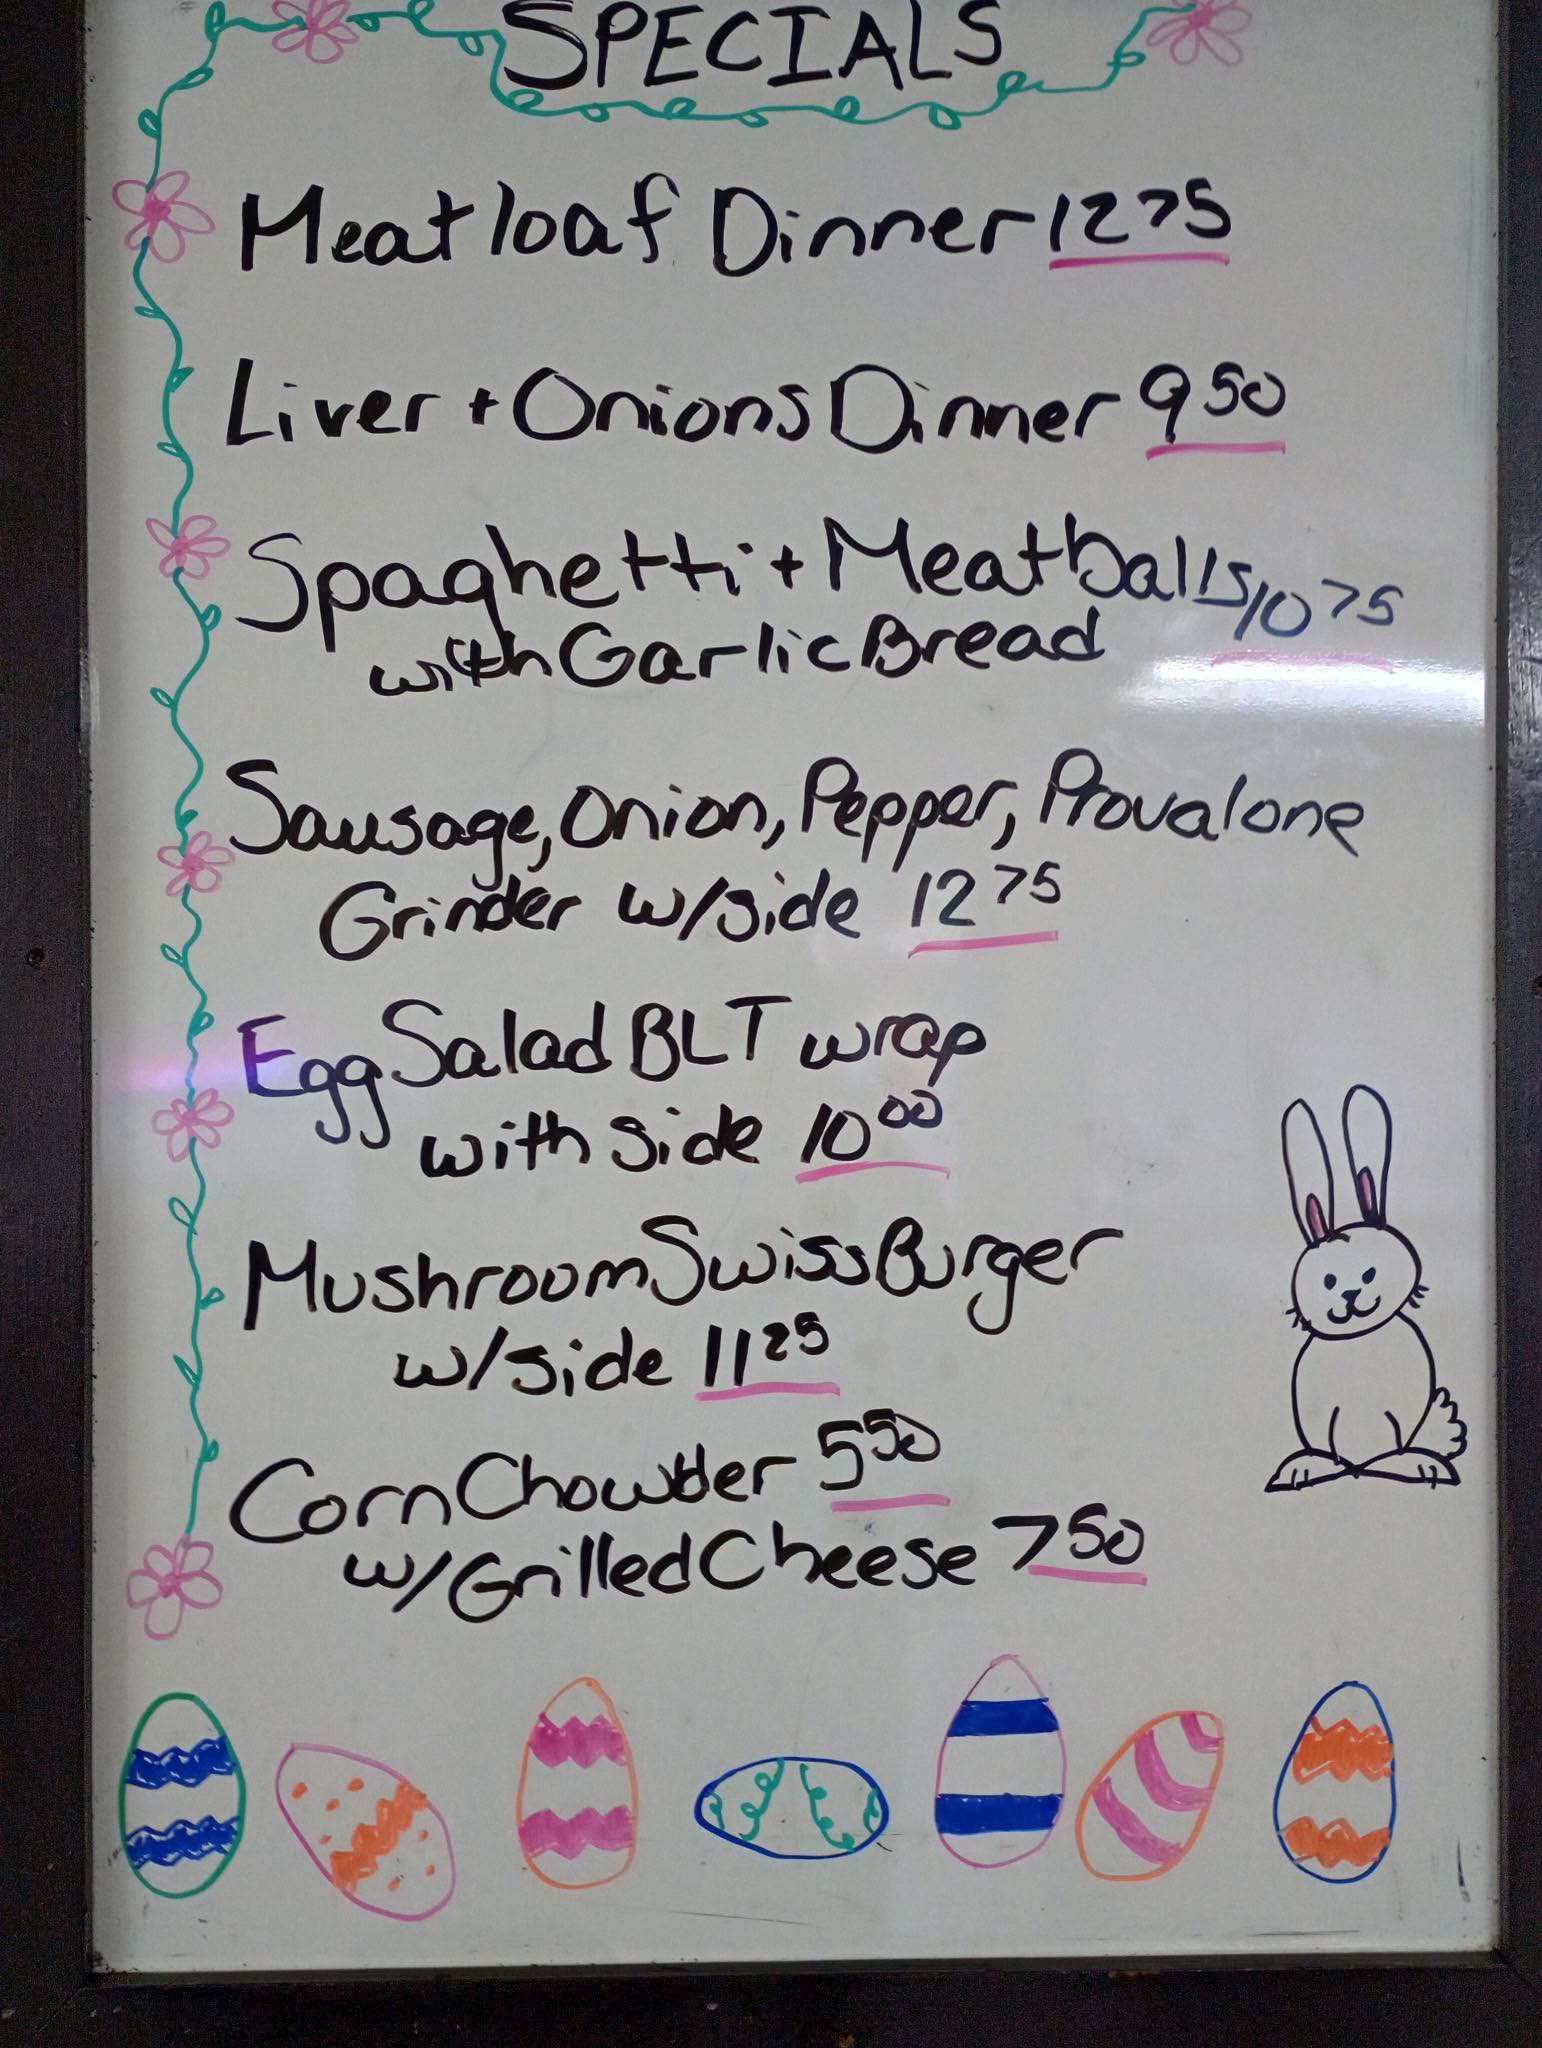 SPECIALS
Meatloaf Dinner 12 75
Liver + Onions Dinner 9 50
Spaghetti + Meatballs 10 75
with Garlic Bread
Sausage, Onion, Pepper, Provalone
Grinder w/side 12 75
Egg Salad BLT wrap
with side 10 00
Mushroom Swiss Burger
w/side 11 25
Corn Chowder 5 50
w/Grilled Cheese 7 50